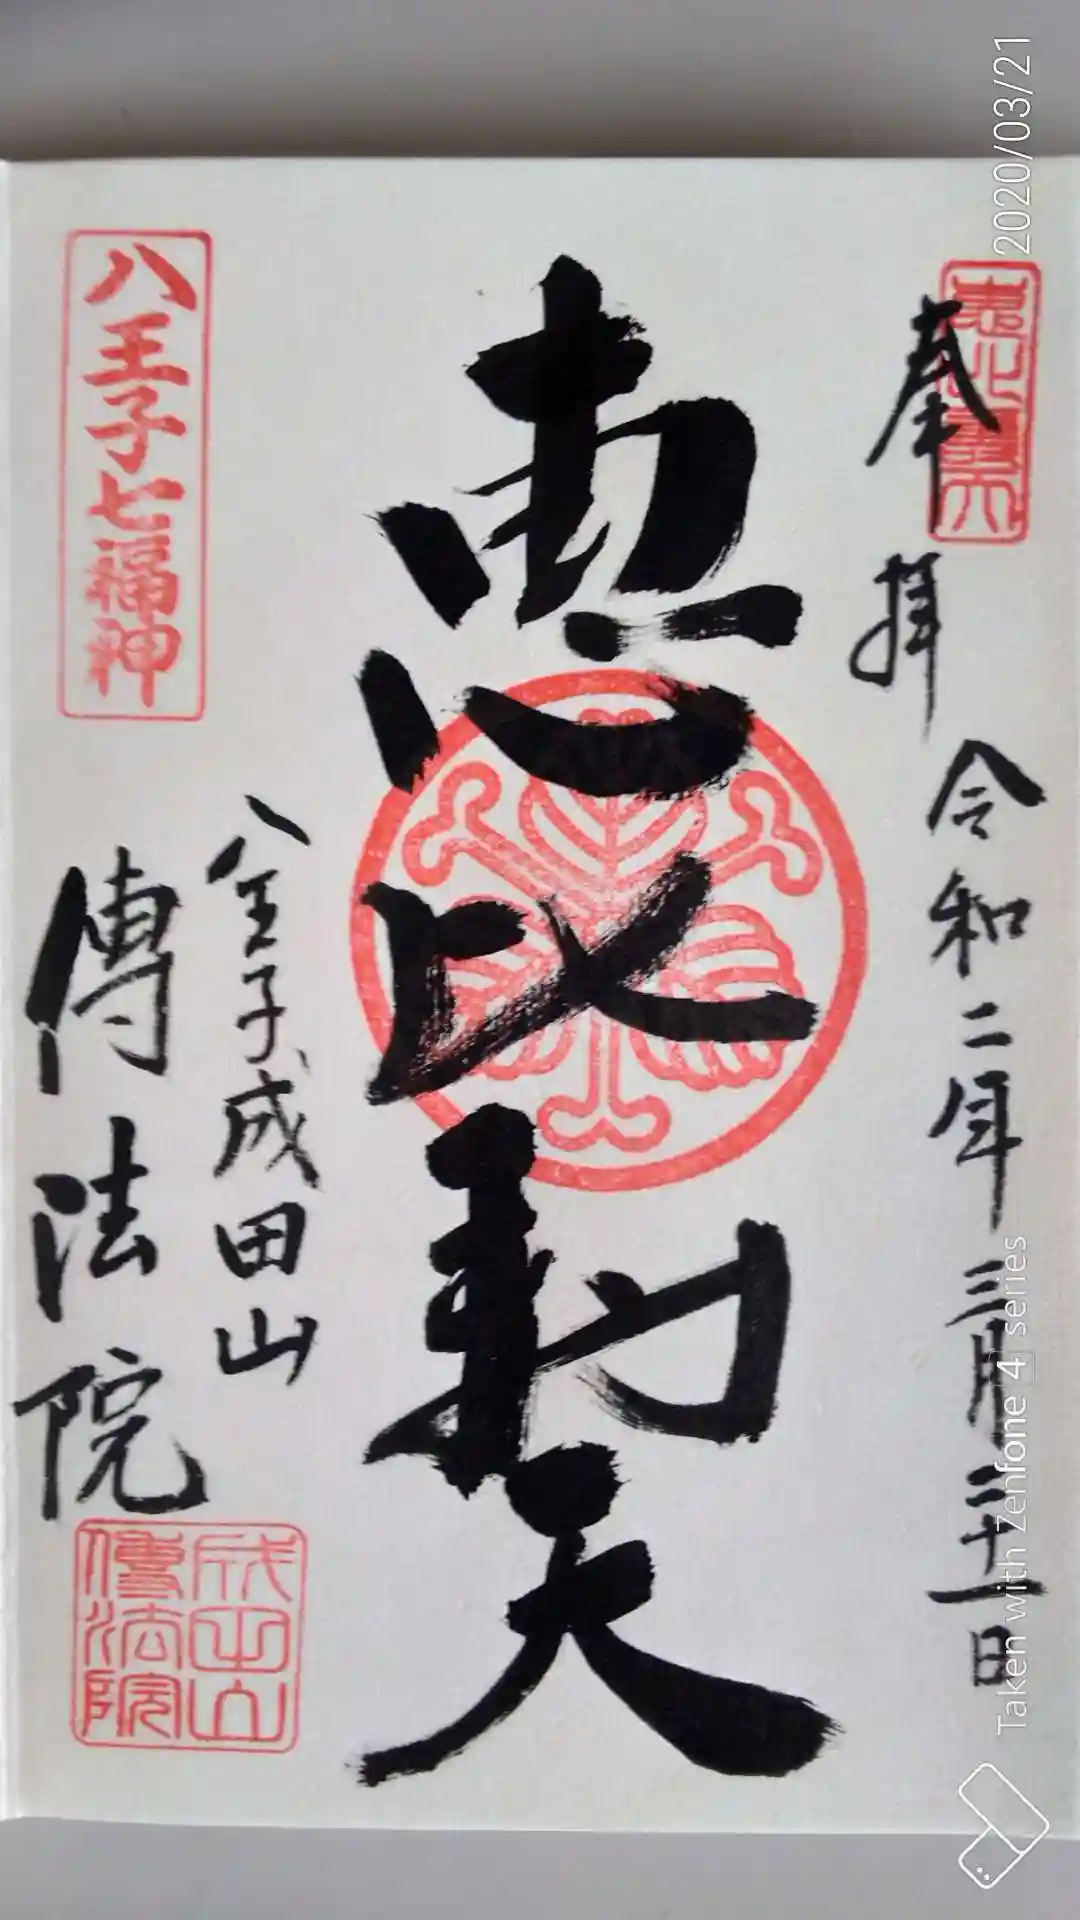 奉拝
令和二年三月二十一日
恵比寿天
八王子七福神
八王子成田山
傳法院
成田山
傳法院
2020/03/21
Taken with Zenfone 4 series